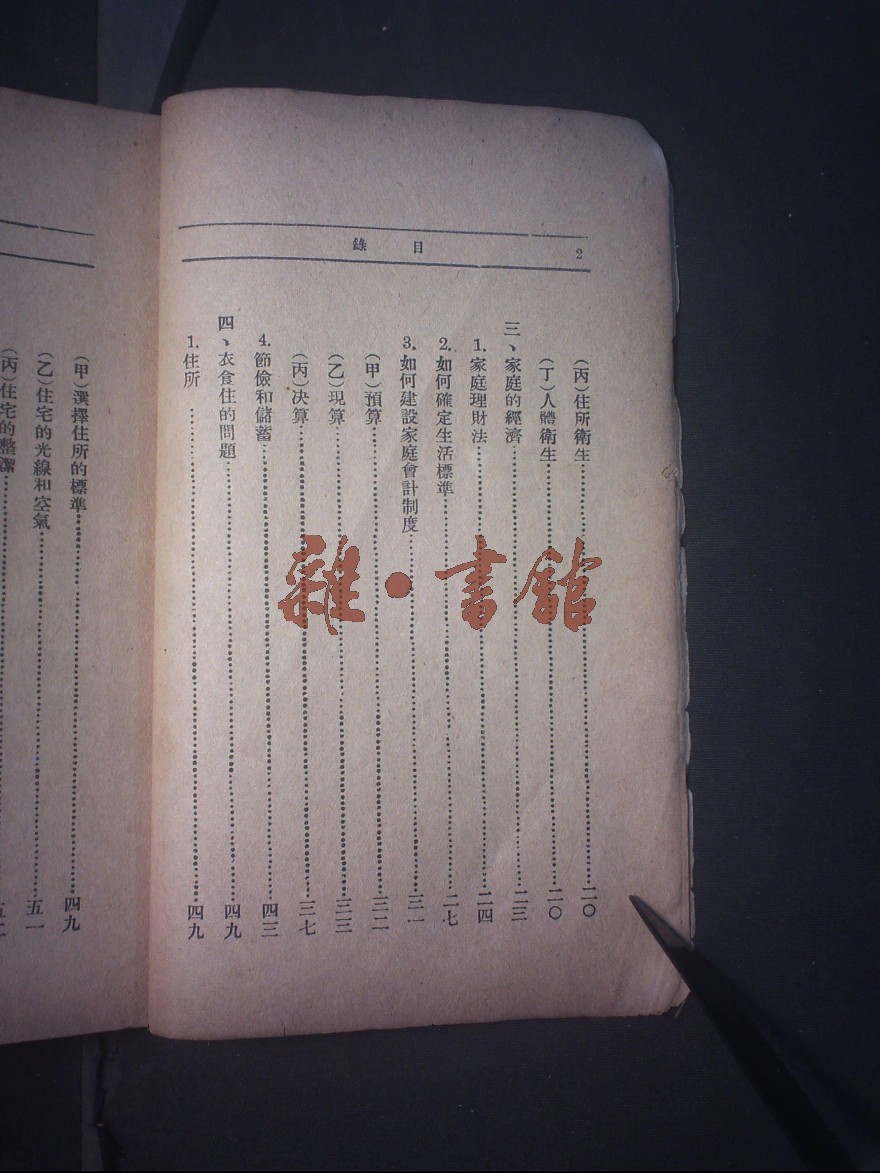 目錄
2
(丙)住所衛生……二〇
(丁)人體衛生……二〇
三、家庭的經濟……二三
1.家庭理財法……二四
2.如何確定生活標準……二七
3.如何建設家庭會計制度……三一
(甲)預算……三二
(乙)現算……三三
(丙)決算……三七
4.節儉和儲蓄……四三
四、衣食住的問題……四九
1.住所……四九
(甲)選擇住所的標準……四九
(乙)住宅的光線和空氣……五一
(丙)住宅的整潔……
雜·書館